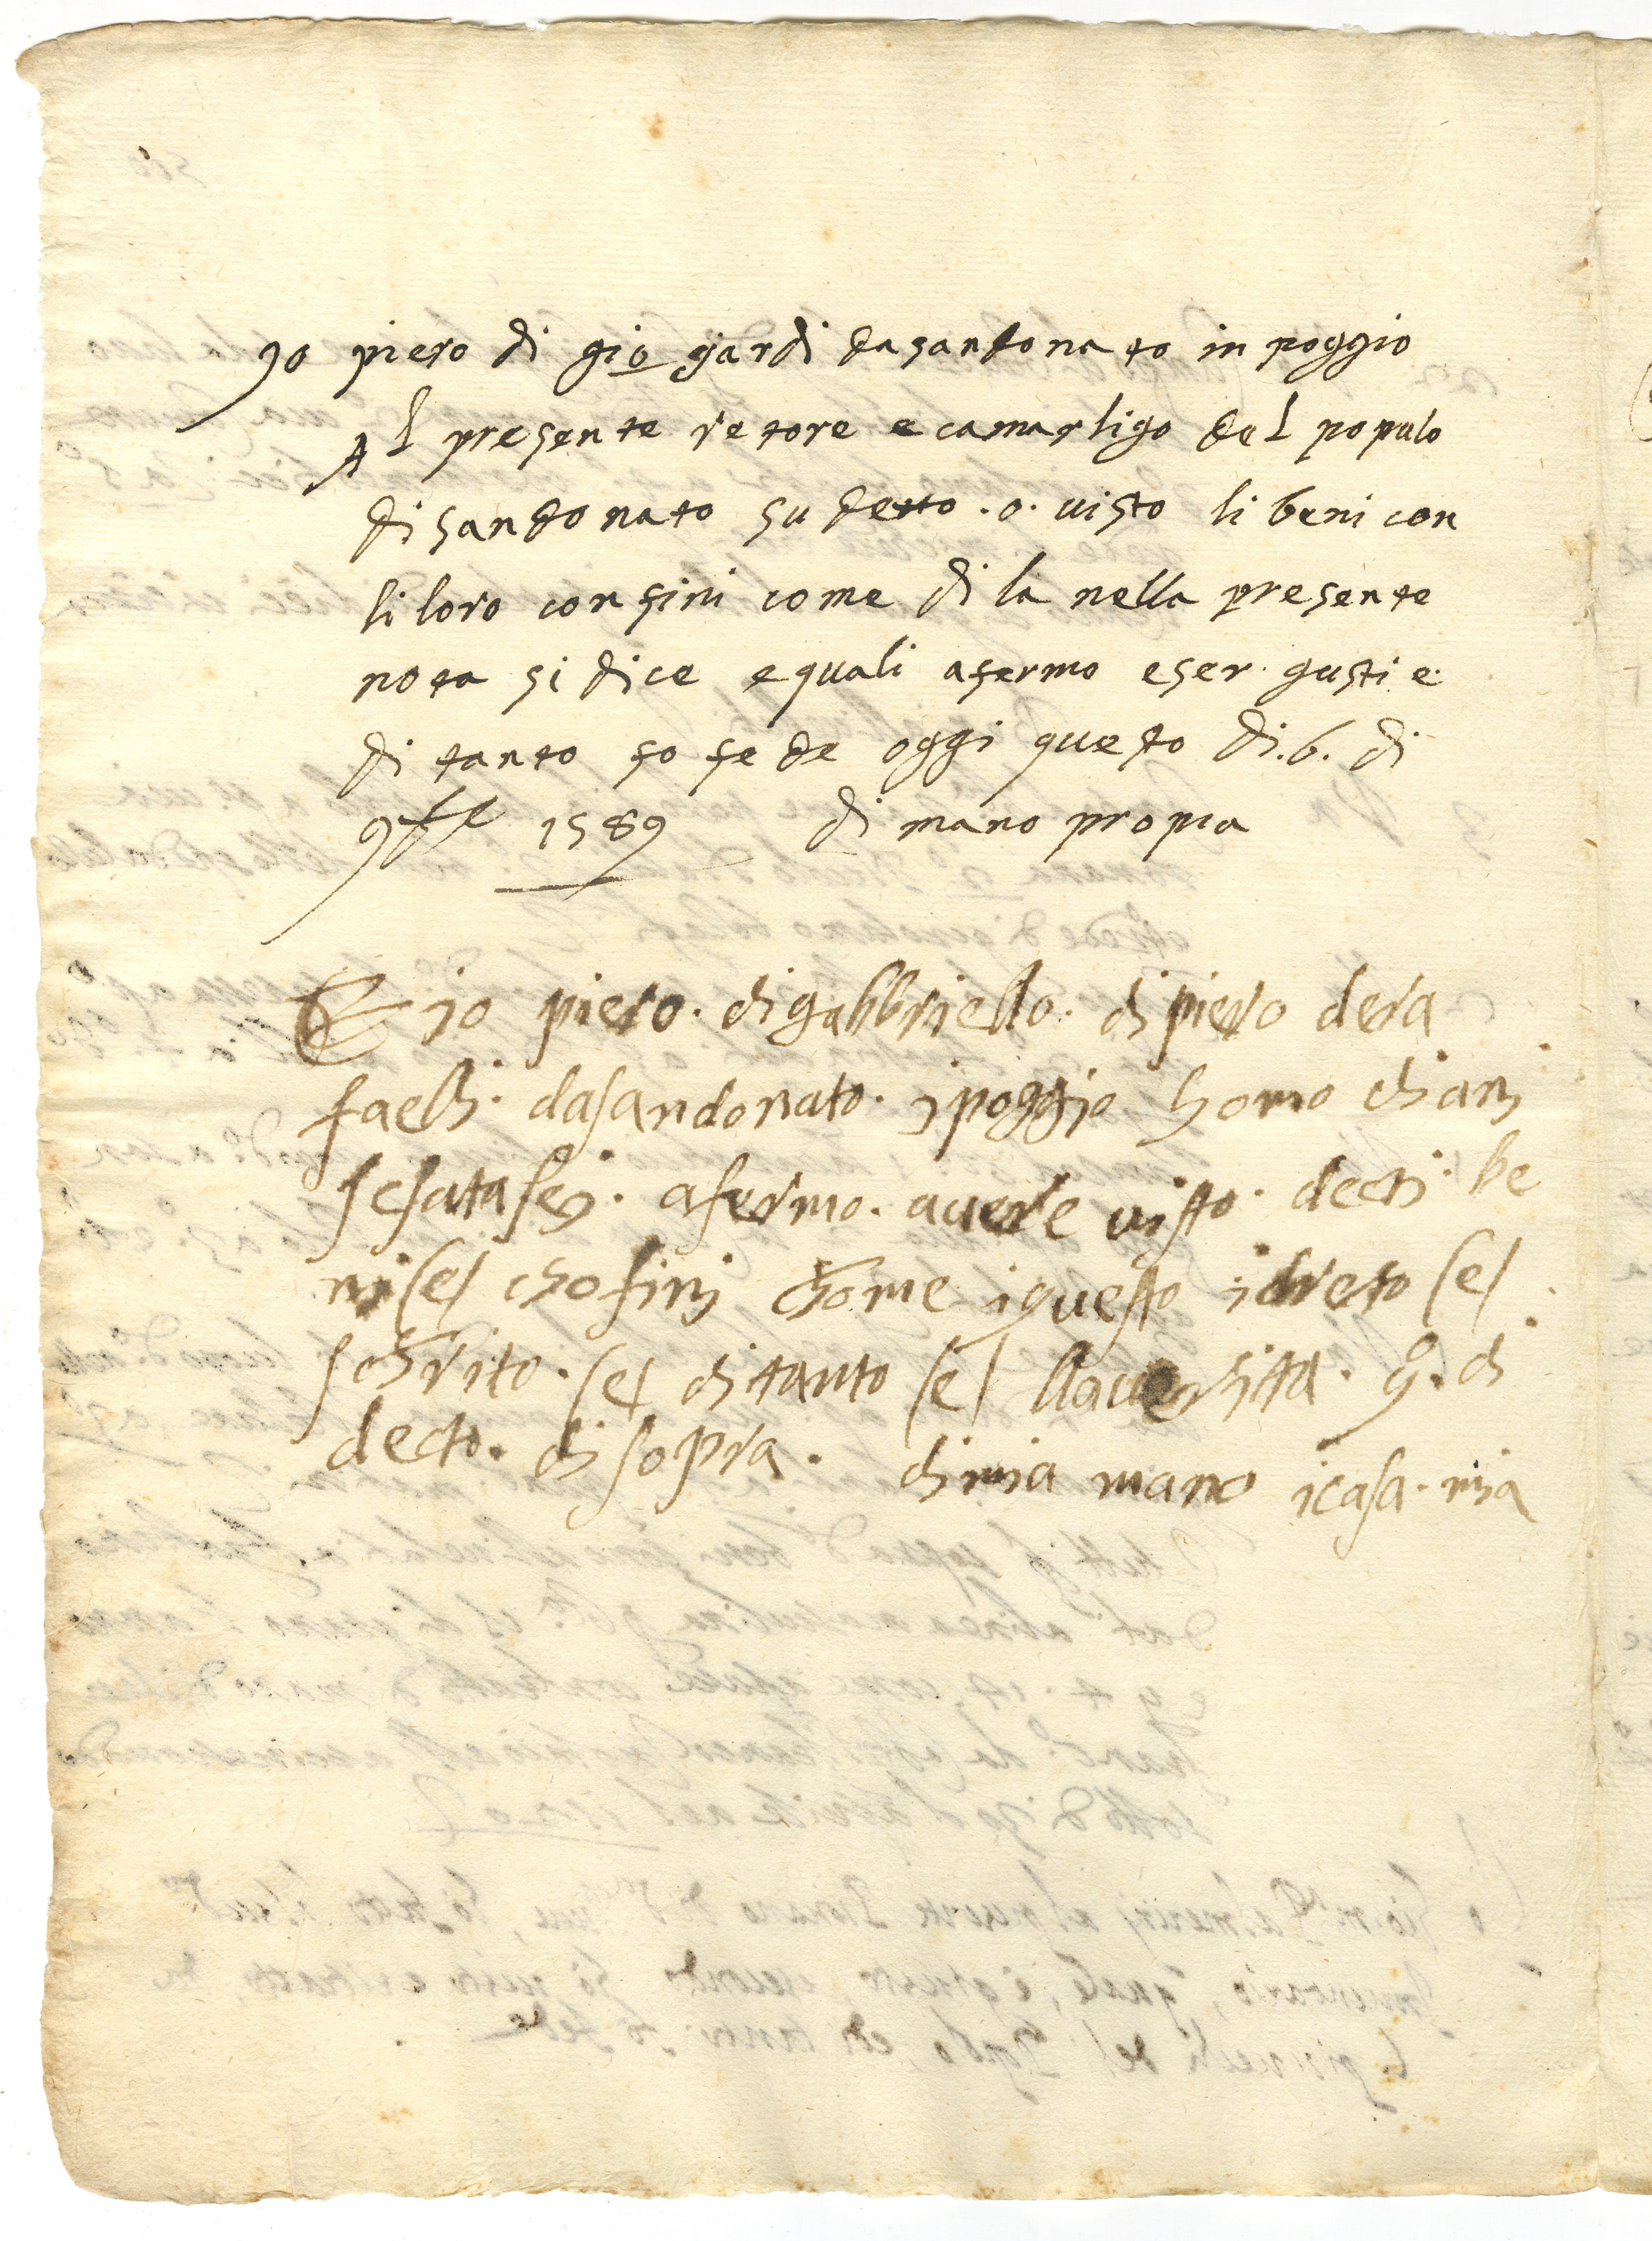 Jo piero di gio giardi dasandonato in poggio
Al presente retore e camarligo del populo
di sandonato sudetto .o. uisto li beni con
li loro confini come di la nella presente
nota si dice e quali afermo eser gusti e
di tanto fo fede oggi questo di .6. di
1589 di mano propia
E io piero. digabbriello. dipiero dera
faelli. dasandonato. ipoggio homo di ani
afermo. auere uisto. decti. be
ni (e) chofini chome iquesto idreto (e)
schrito. (e) ditanto (e) llauersitta. q. di
decto. disopra. dimia mano icasa. mia